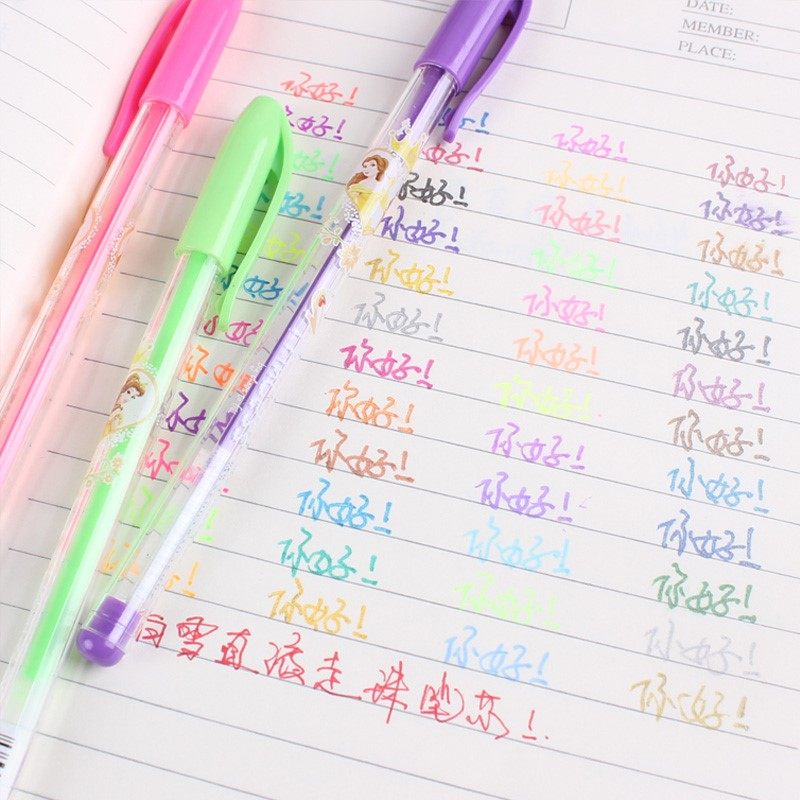 DATE:
MEMBER:
PLACE:
你好! 好! 你好! 你好!
你好! 好! 你好! 你好!
好! 你好! 你好! 你好!
好! 你好! 你好! 你好!
好! 你好! 你好! 你好!
你好! 你好! 你好! 你好!
你好 你好! 你好! 你好!
你好 你好! 你好! 你好!
你好 你好! 你好! 你好!
你好 你好! 你好! 你好!
你好! 你好! 你好! 你好!
你好! 你好! 你好!
白雪直液走珠笔芯!